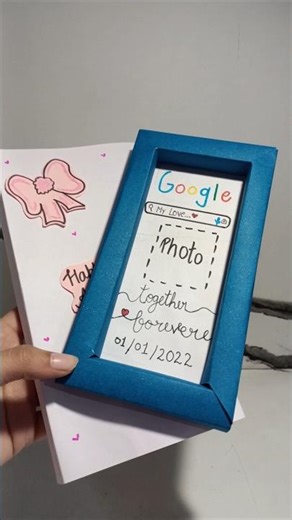 Google
My Love...
Photo
together
forevere
01/01/2022